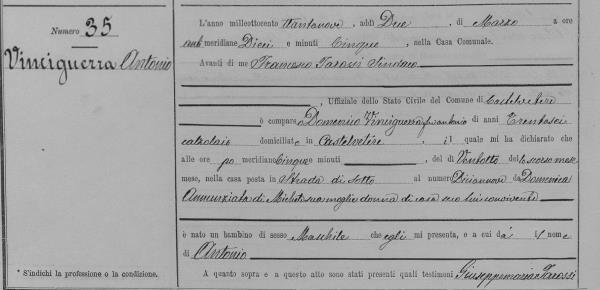 Numero 35
Vinciguerra Antonio
L'anno milleottocento ttantanove, addì Due, di Marzo a ore
antimeridiane Dieci e minuti Cinque, nella Casa Comunale.
Avanti di me Francesco Tarossi Sindaco
, Uffiziale dello Stato Civile del Comune di Castelvetere
è comparso Domenico Vinciguerra fu Antonio di anni Trentasei
domiciliato in Castelvetere, il quale mi ha dichiarato che
alle ore po meridiane Cinque e minuti, del dì Ventotto del scorso mese
mese, nella casa posta in Strada di Sotto al numero Diciannove da Domenica
Annunziata di Michele sua moglie donna di casa seco lui convivente
è nato un bambino di sesso Maschile che egli mi presenta, e a cui dà il nome
di Antonio
* S'indichi la professione o la condizione.
A quanto sopra e a questo atto sono stati presenti quali testimoni Giuseppemaria Tarossi